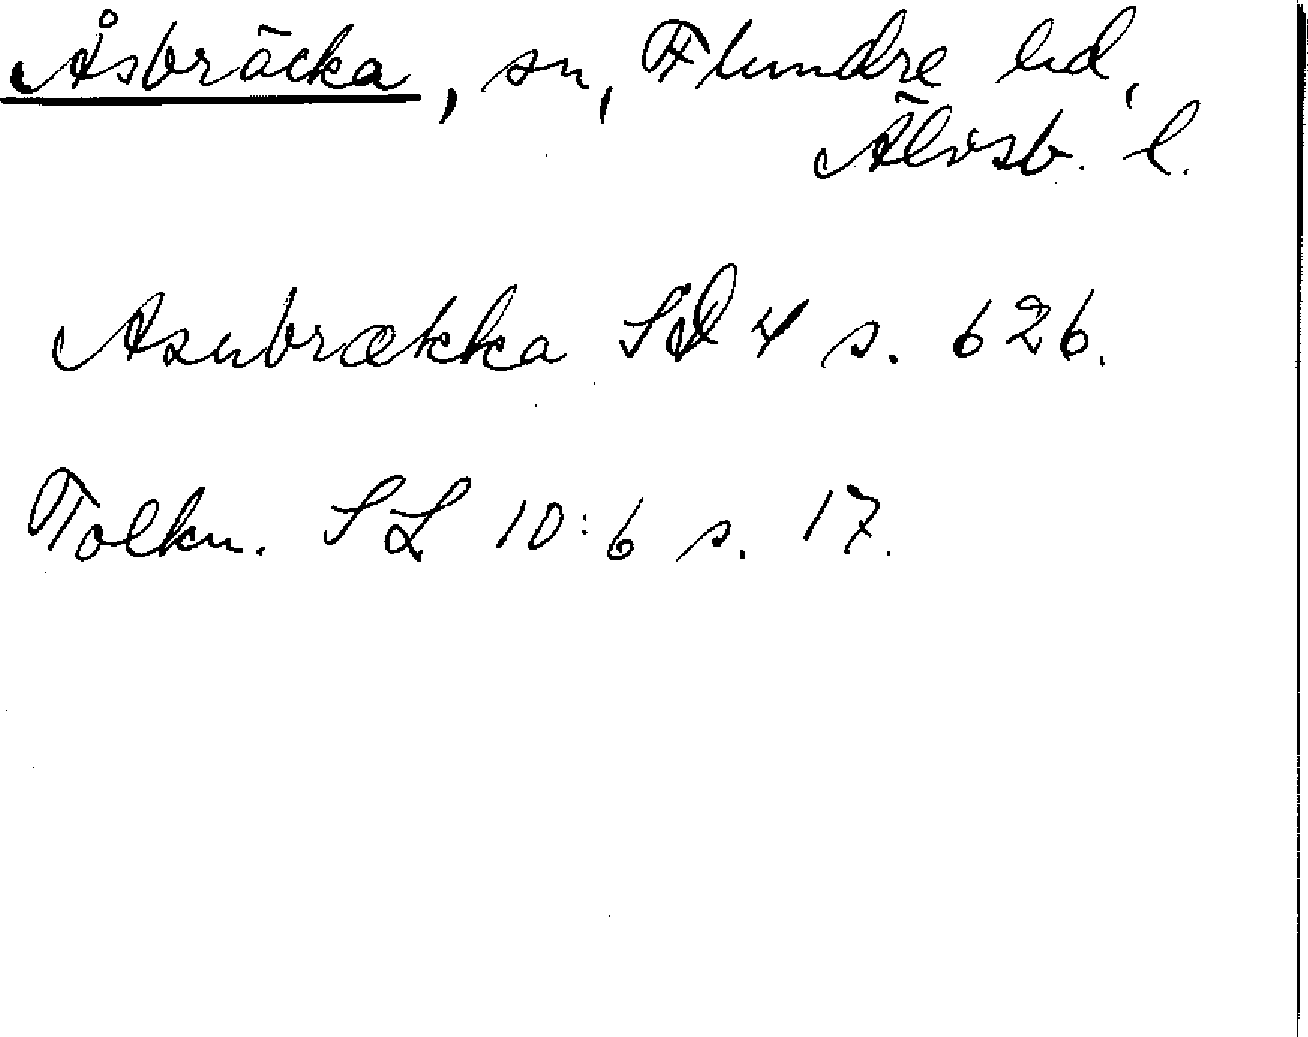 Åsbräcka, sn, Flundre hd,
Älvsb. l.
Asubrækka SD 4 s. 626.
Tolkn. SL 10:6 s. 17.